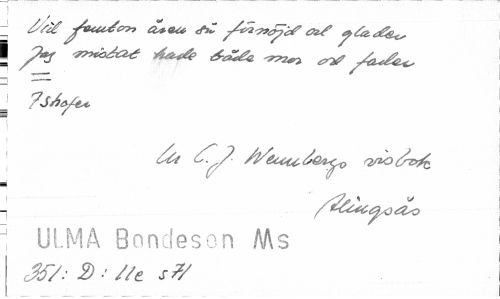 Vid femton åren så förnöjd och glader
Jag mistat hade både mor och fader
7 strofer
Ur C. J. Wennbergs visbok
Alingsås
ULMA Bondeson Ms
351: D: 11e s 71